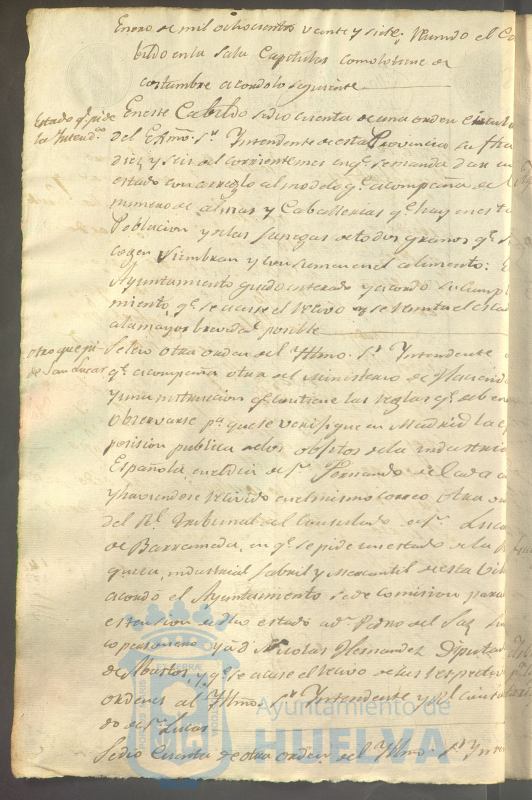 Enero de mil ochocientos veinte y siete; Reunido el Ca
bildo en la Sala Capitular como lo tiene de
costumbre acordó lo siguiente
Estado q.e pide
la Intend.a
En este Cabildo se dio cuenta de una orden
del Exmo. S.r Intendente de esta Provincia su fha
diez y seis del corriente mes en q.e se manda dar un
estado con arreglo al modelo q.e acompaña de el
numero de almas y Caballerias q.e hay en esta
Poblacion y de las fanegas de todos granos q.e se
cogen siembran y consumen en el alimento: El
Ayuntamiento quedó enterado y acordó su cumpli
miento, q.e se acuse el recivo y se remita el estado
a la mayor brevedad posible
Otro que pi
de San Lucar
Se leio otra orden del Yltmo. S.r Yntendente
q.e acompaña otra del Ministerio de Hacienda
y una instruccion q.e contiene las reglas q.e deben
observarse p.a que se verifique en Madrid la es
posision publica de los objetos de la industria
Española, en el dia de S.n Fernando de cada
y haviendose recivido en el mismo correo otra or
del R.l Tribunal del Consulado de S.n Lucar
de Barrameda, en q.e se pide un estado de la
queza, industrial fabril y Mercantil de esta Villa
acordó el Ayuntamiento se de comision para
estension de dho estado a d.n Pedro del Saz
co personero y a d.n Nicolas Hernandez Diputado
de Abastos, y q.e se acuse el recivo de las respectivas
ordenes al Yltmo. S.r Yntendente y R.l Consula
do de S.n Lucar
Se dio Cuenta de otra orden del Yltmo. S.r Yn
Ayuntamiento de
HUELVA